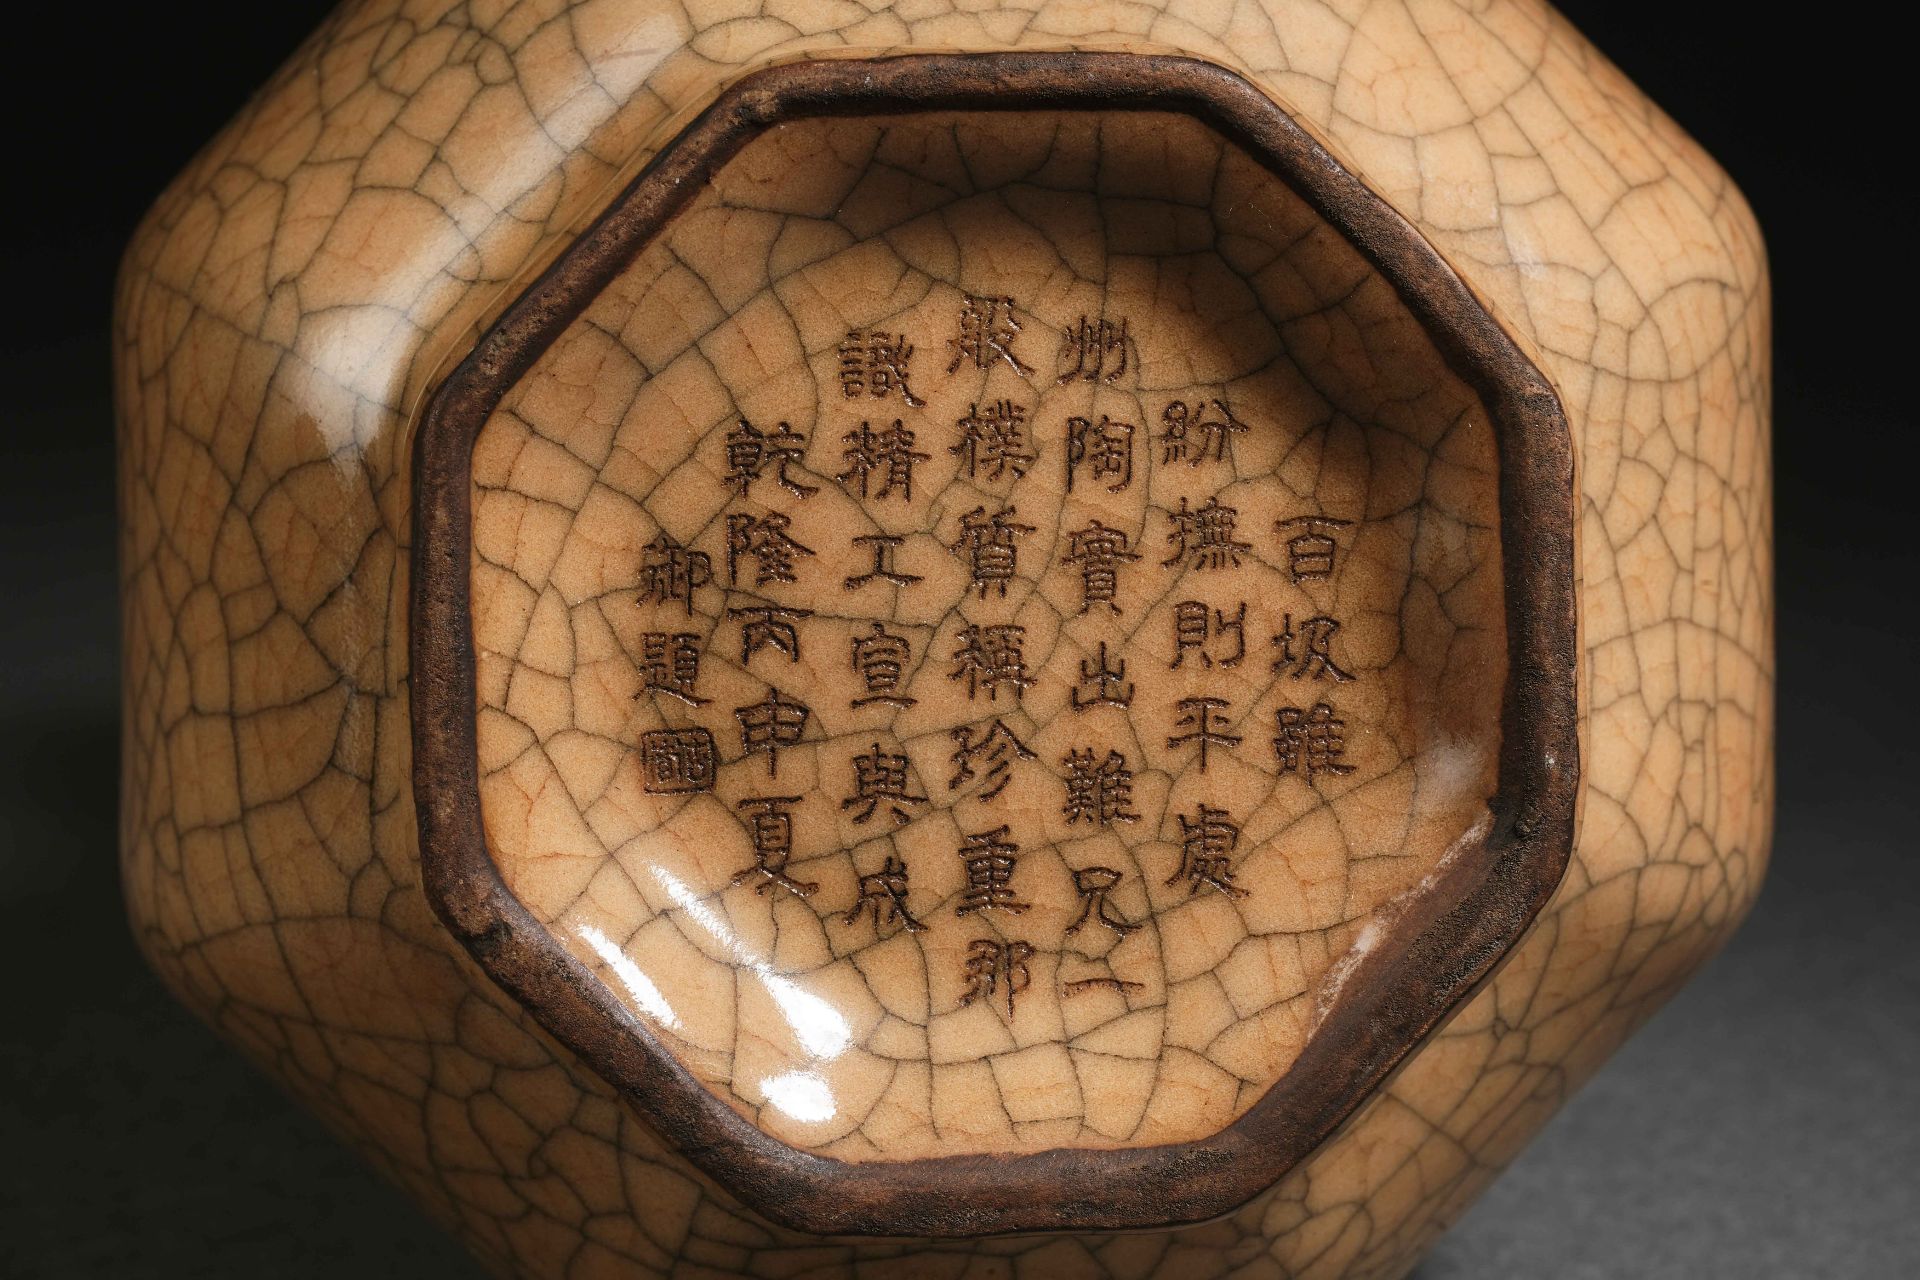 百圾雖
紛撫則平處
州陶實出難兄一
般樸質稱珍重那
識精工宣與成
乾隆丙申夏
御題